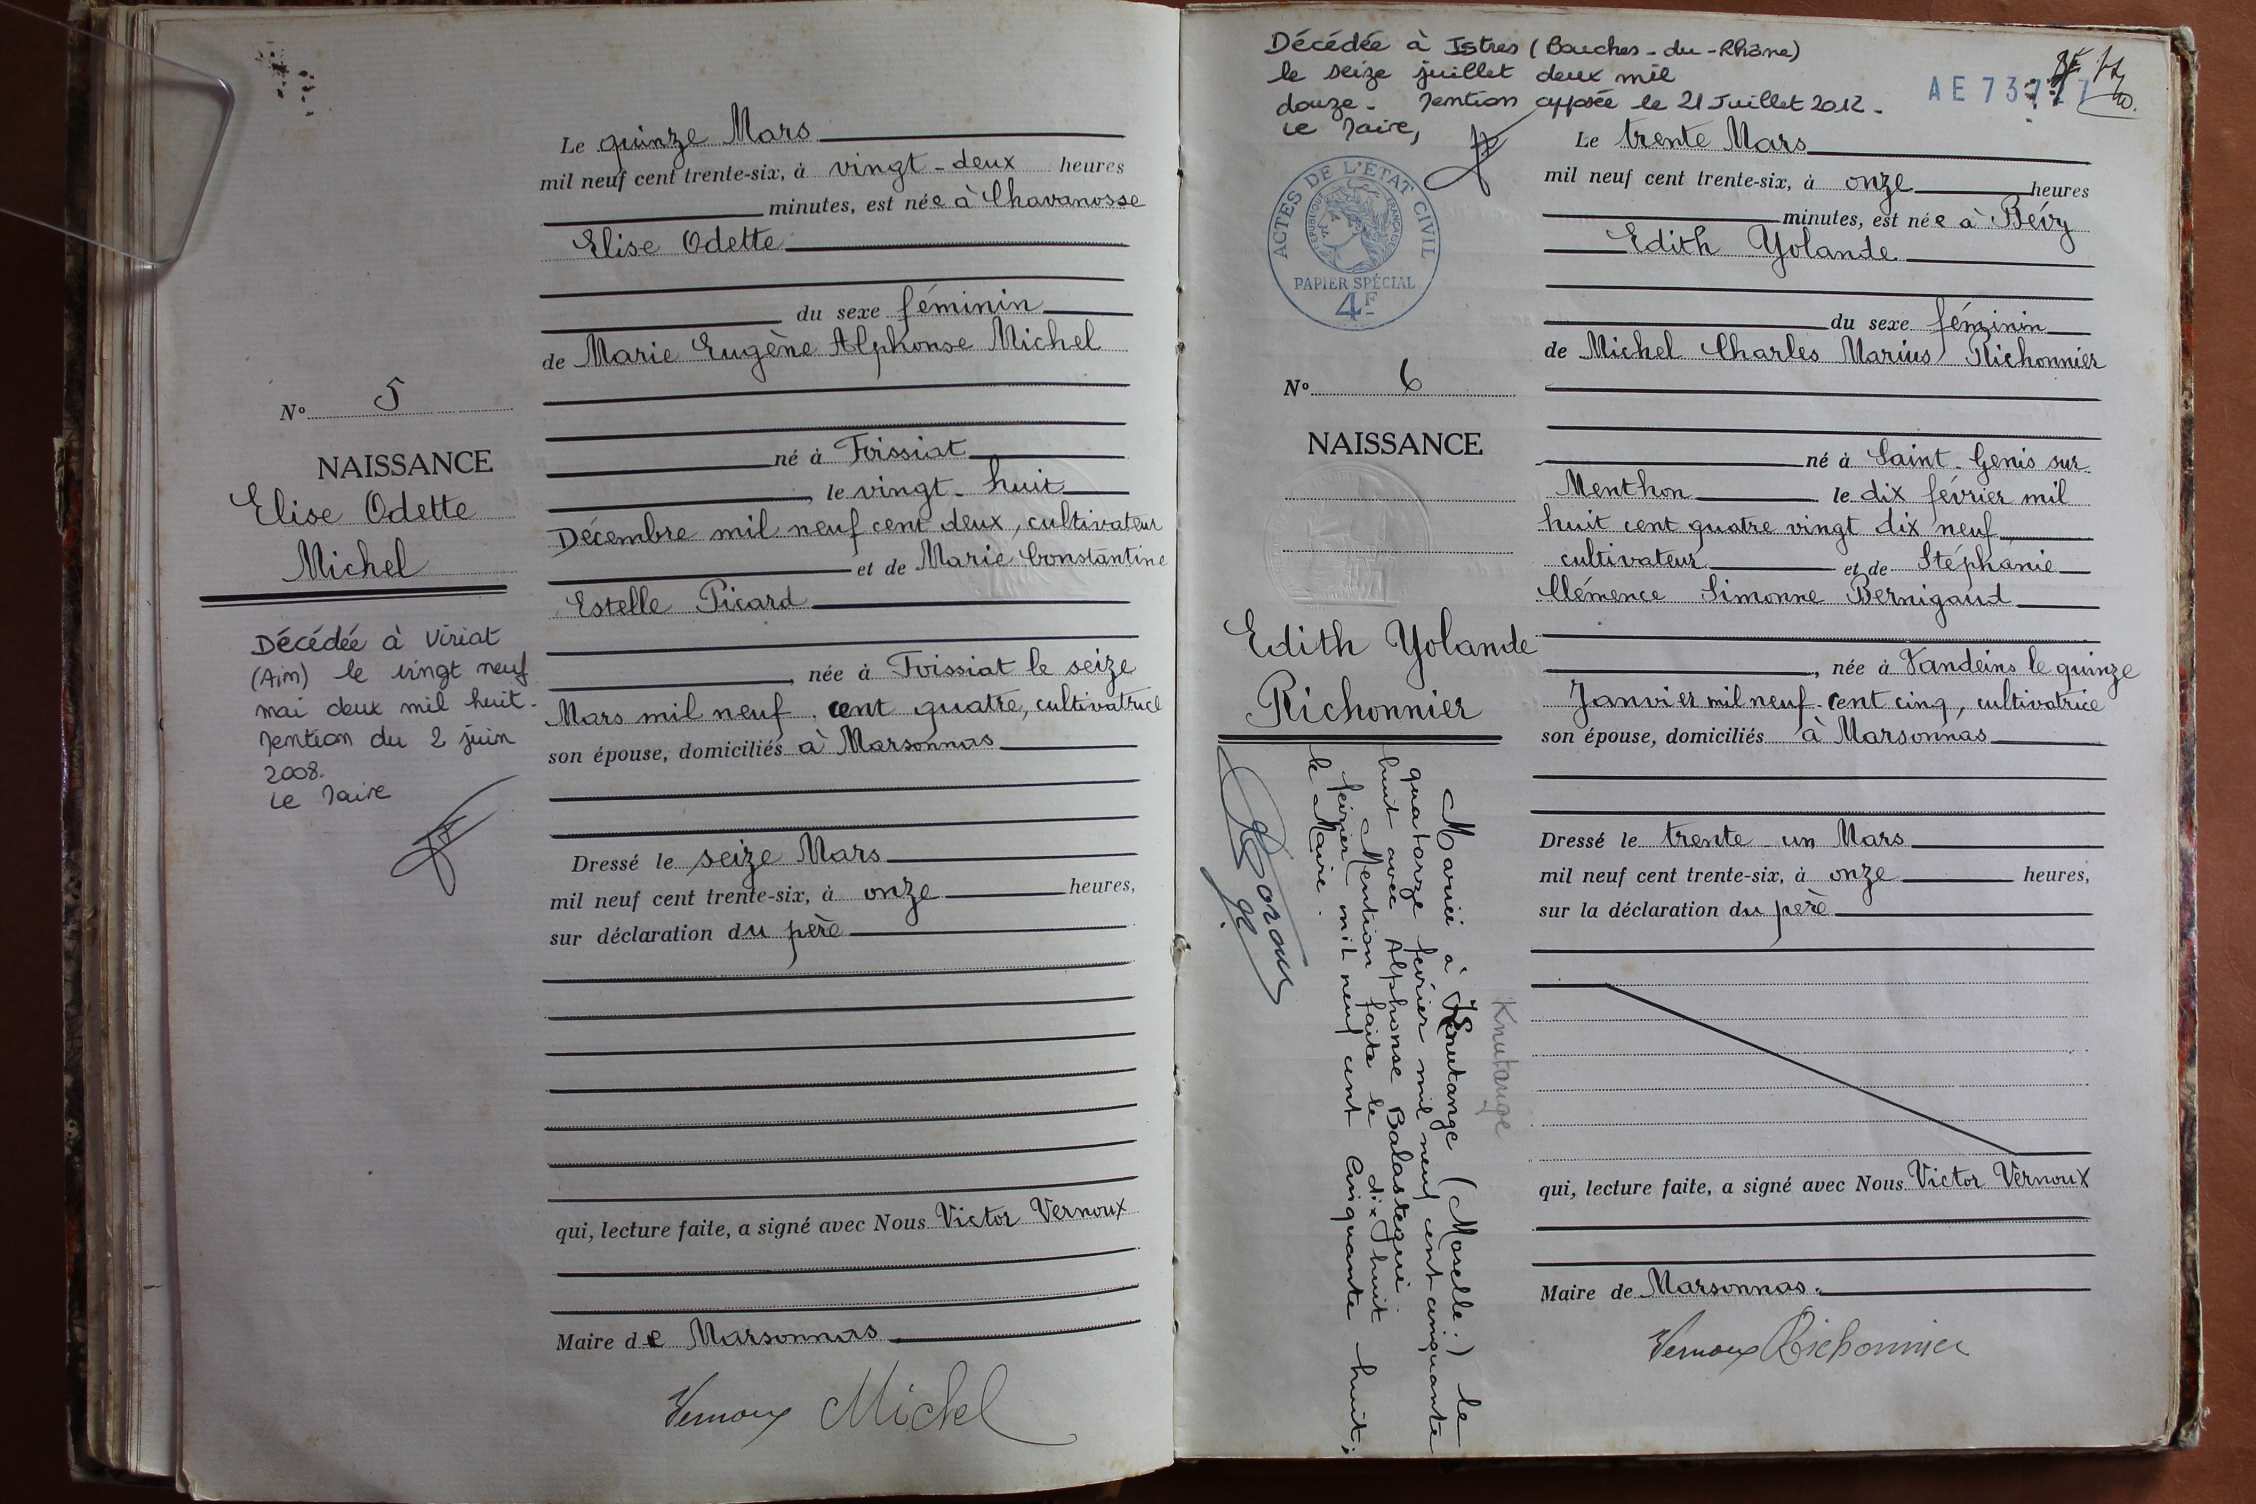 Le quinze Mars
mil neuf cent trente-six, à vingt-deux heures
minutes, est née à Chavanosse
Elise Odette
du sexe féminin
de Marie Eugène Alphonse Michel
né à Foissiat
, le vingt-huit
Décembre mil neuf cent deux, cultivateur
et de Marie Constantine
Estelle Picard
, née à Foissiat le seize
Mars mil neuf cent quatre, cultivatrice
son épouse, domiciliés à Marsonnas
Dressé le seize Mars
mil neuf cent trente-six, à onze heures,
sur déclaration du père
qui, lecture faite, a signé avec Nous Victor Vernoux
Maire de Marsonnas
Vernoux Michel
No 5
NAISSANCE
Elise Odette
Michel
Décédée à Viriat
(Ain) le vingt neuf
mai deux mil huit-
Mention du 2 juin
2008.
Le Maire
Décédée à Istres (Bouches-du-Rhône)
le seize juillet deux mil
douze - Mention apposée le 21 Juillet 2012 -
Le Maire,
AE 73
ACTES DE L'ÉTAT CIVIL
RÉPUBLIQUE FRANÇAISE
PAPIER SPÉCIAL
4F
No 6
NAISSANCE
Edith Yolande
Richonnier
Mariée à Knutange (Moselle.) le
quatorze février mil neuf cent cinquante
huit avec Alphonse Balastegui.
Mention faite le dix huit
février mil neuf cent cinquante huit;
le Maire.
Knutange
Le trente Mars
mil neuf cent trente-six, à onze heures
minutes, est née à Bévy
Edith Yolande
du sexe féminin
de Michel Charles Marius Richonnier
né à Saint-Genis sur
Menthon le dix février mil
huit cent quatre vingt dix neuf
cultivateur et de Stéphanie
Clémence Simonne Bernigaud
, née à Vandeins le quinze
Janvier mil neuf cent cinq, cultivatrice
son épouse, domiciliés à Marsonnas
Dressé le trente un Mars
mil neuf cent trente-six, à onze heures,
sur la déclaration du père
qui, lecture faite, a signé avec Nous Victor Vernoux
Maire de Marsonnas.
Vernoux Richonnier